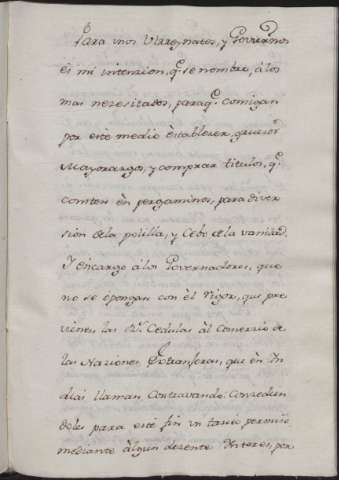 Para unos Virreynatos, y Goviernos
es mi intencion, q.e se nombre, á los
mas necesitados, paraq.e consigan
por este medio establecer, gruesos
Mayorazgos, y comprar titulos, q.e
consten en pergaminos, para diver
sion de la polilla, y Cebo de la vanidad.
Y encargo á los Governadores, que
no se opongan con el Rigor, que pre
vienen las R.s Cedulas al Comercio de
las Naciones Extranjeras, que en In
dias llaman Contravando: Concedien
doles para este fin un tacito permiso
mediante algun decente Interes, por